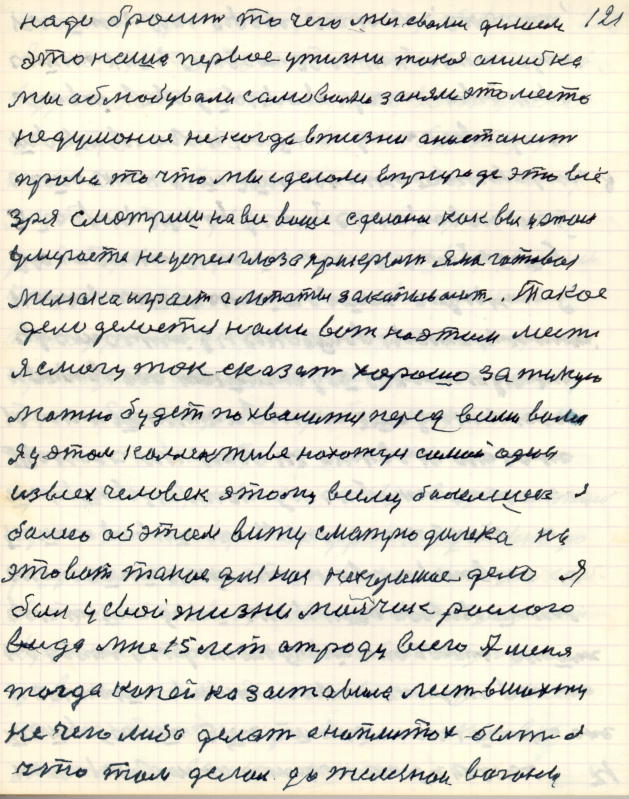 надо бросит то чего мы свами делаем 121
это наша первое ужизни такая ошибка
мы облюбували самоволно заняли это место
недумоное некогда вжизни анастанит
права то что мы сделали вприроде это всё
зря смотриш на все ваше сделано как вы уэтом
умираете неуспел глоза прикрыт яма готовая
музыка играет алопаты закапывают. Такое
дело делается нами вот наэтим месте
я смогу так сказат хорошо за такую
можно будет похвалится перед всеми вами
я уэтом коллективе нахожуся самый один
извсех человек этому всему
болею об этом вижу сматрю далека на
это вот такое для нас нехорошее дело Я
был у свой жизни малчик рослого
вида мне 15 лет отроду всего 7 меня
тогда копейка заставила лест вшахту
не чего либо делат анаплитах быт
что там делал до железной вагонки